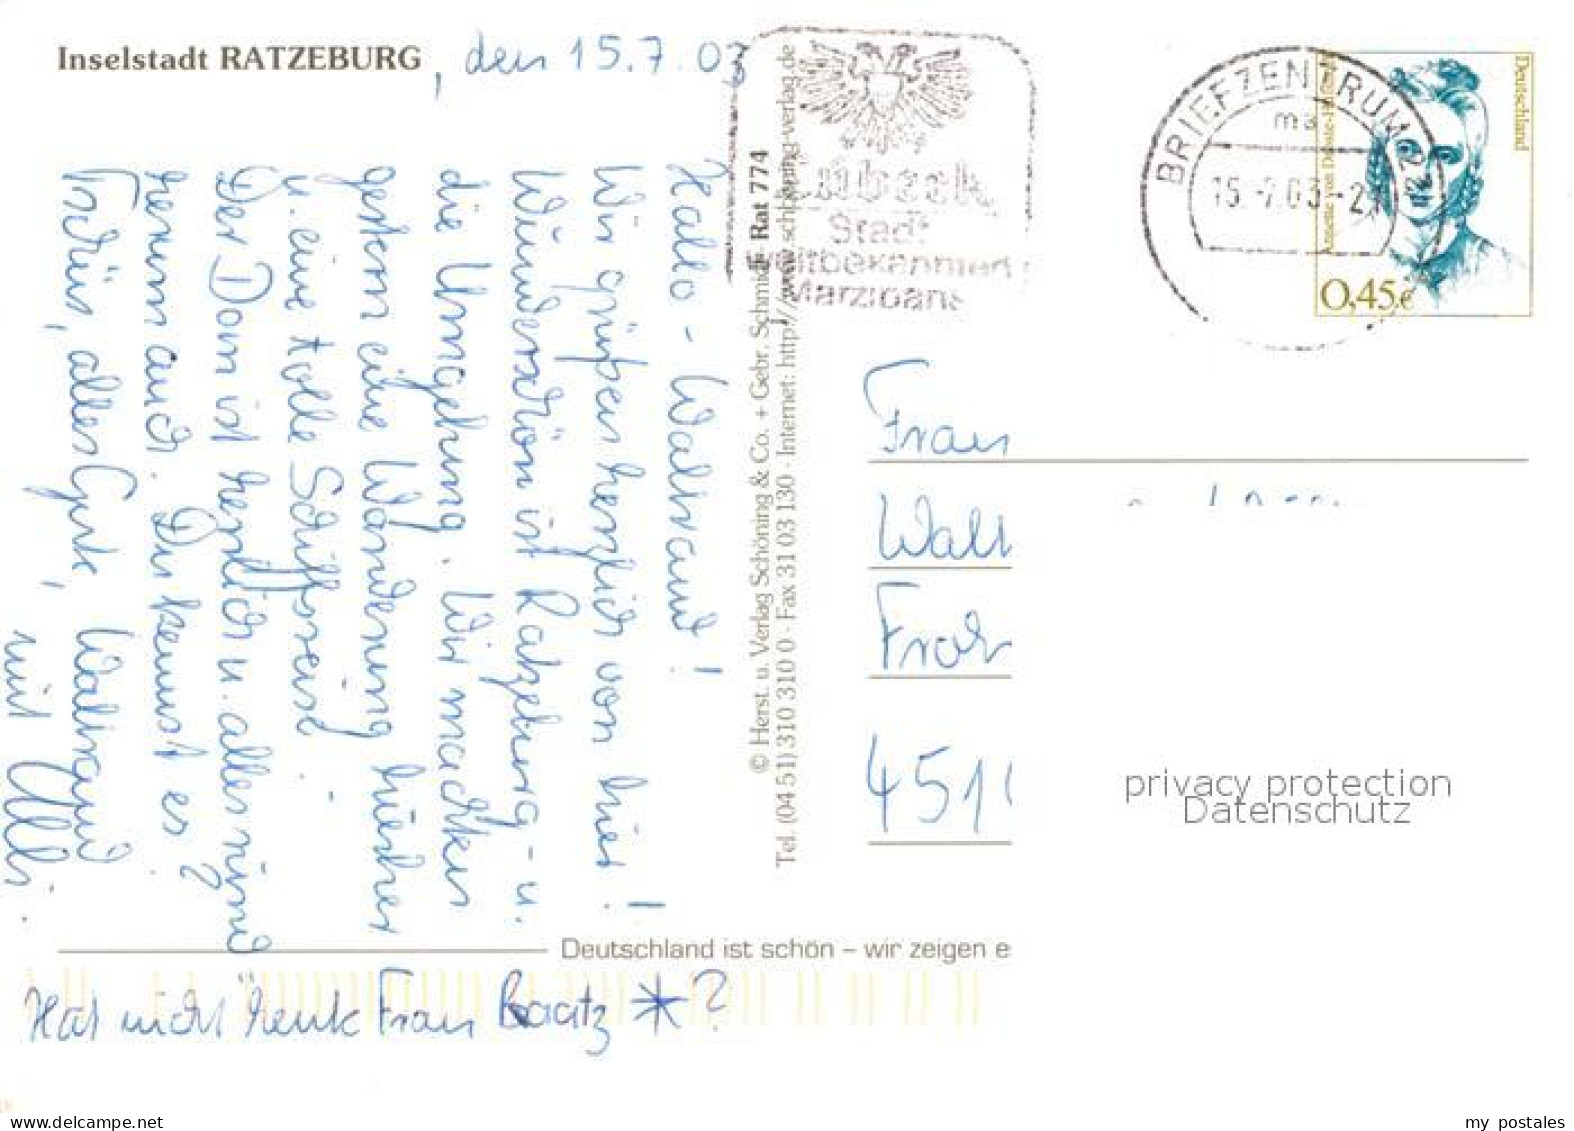 Inselstadt RATZEBURG, den 15.7.03
Hallo - Waltraud!
Wir grüßen herzlich von hier!
Wunderschön ist Ratzeburg - u.
die Umgebung. Wir machten
gestern eine Wanderung hierher
u. eine tolle Schiffsreise.
Der Dom ist herrlich u. alles rund
herum auch. Du kennst es?
Tschüs, alles Gute, Waltraud
und
© Herst. u. Verlag Schöning & Co. + Gebr. Schmidt Rat 774
Tel. (04 51) 310 310 0 · Fax 31 03 130 · Internet: http://www.schoening-verlag.de
Lübeck
Stadt
weltbekannten
Marzipans
BRIEFZENTRUM 23
ma
15.-7.03-21
Deutschland
Annette von Droste-Hülshoff
0,45 €
Frau
Walt
Froh
451
privacy protection
Datenschutz
Deutschland ist schön – wir zeigen e
Hat nicht heute Frau Baatz *?
www.mypostales.com
my postales